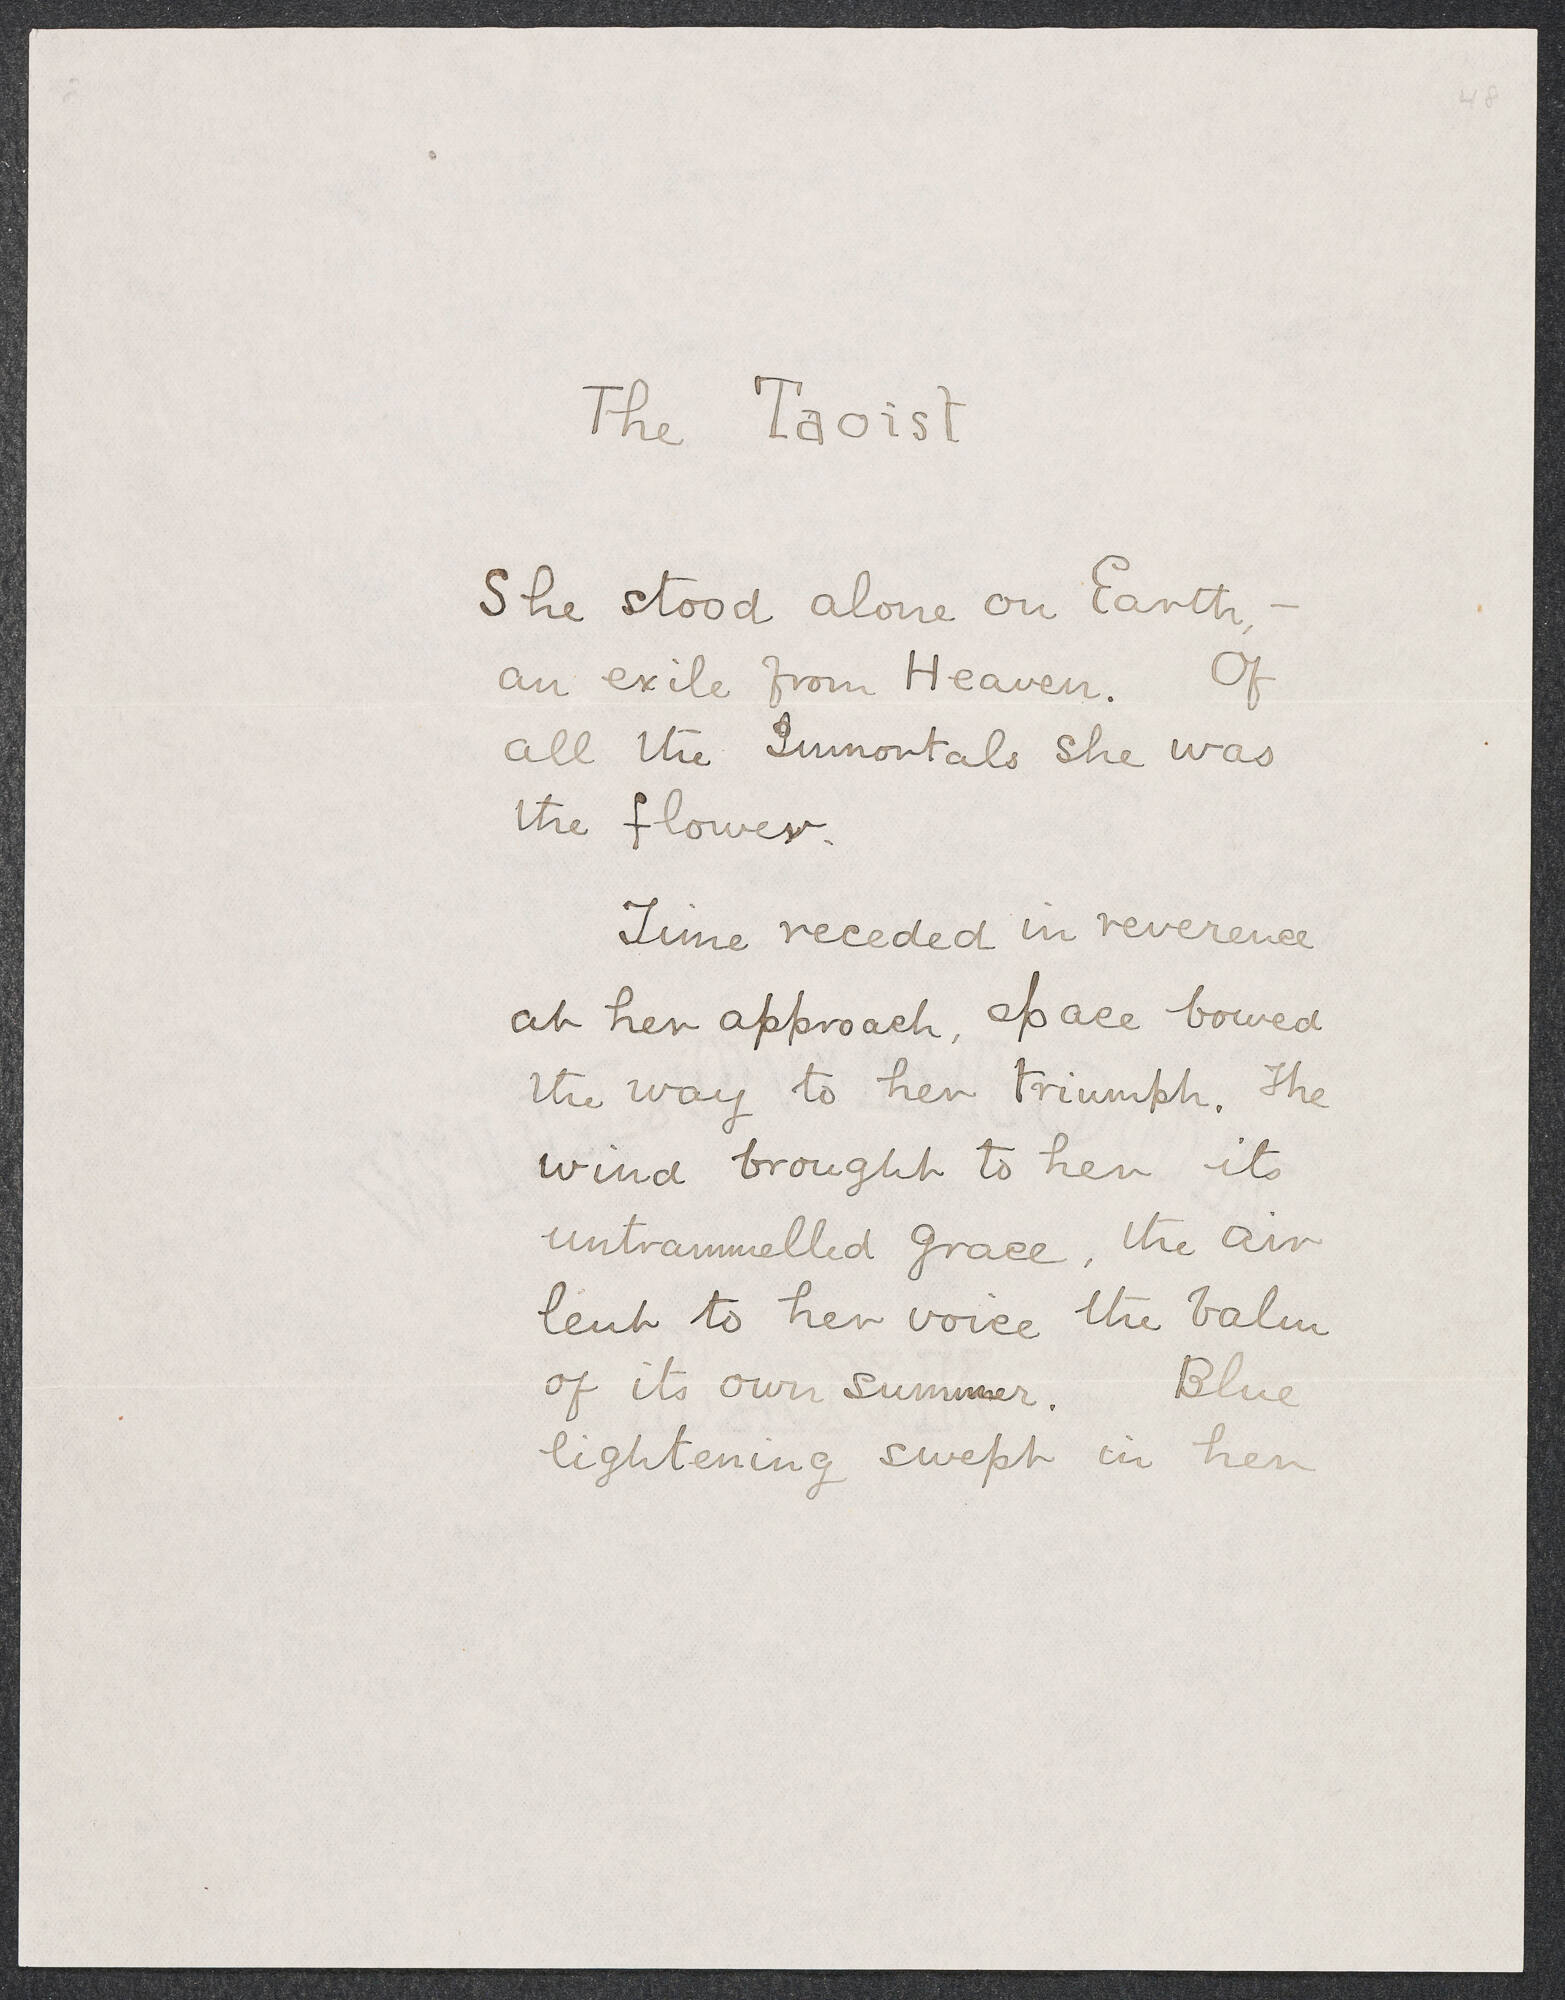 48
The Taoist
She stood alone on Earth, –
an exile from Heaven. Of
all the Immortals she was
the flower.
Time receded in reverence
at her approach, space bowed
the way to her triumph. The
wind brought to her its
untrammelled grace, the air
lent to her voice the balm
of its own summer. Blue
lightening swept in her